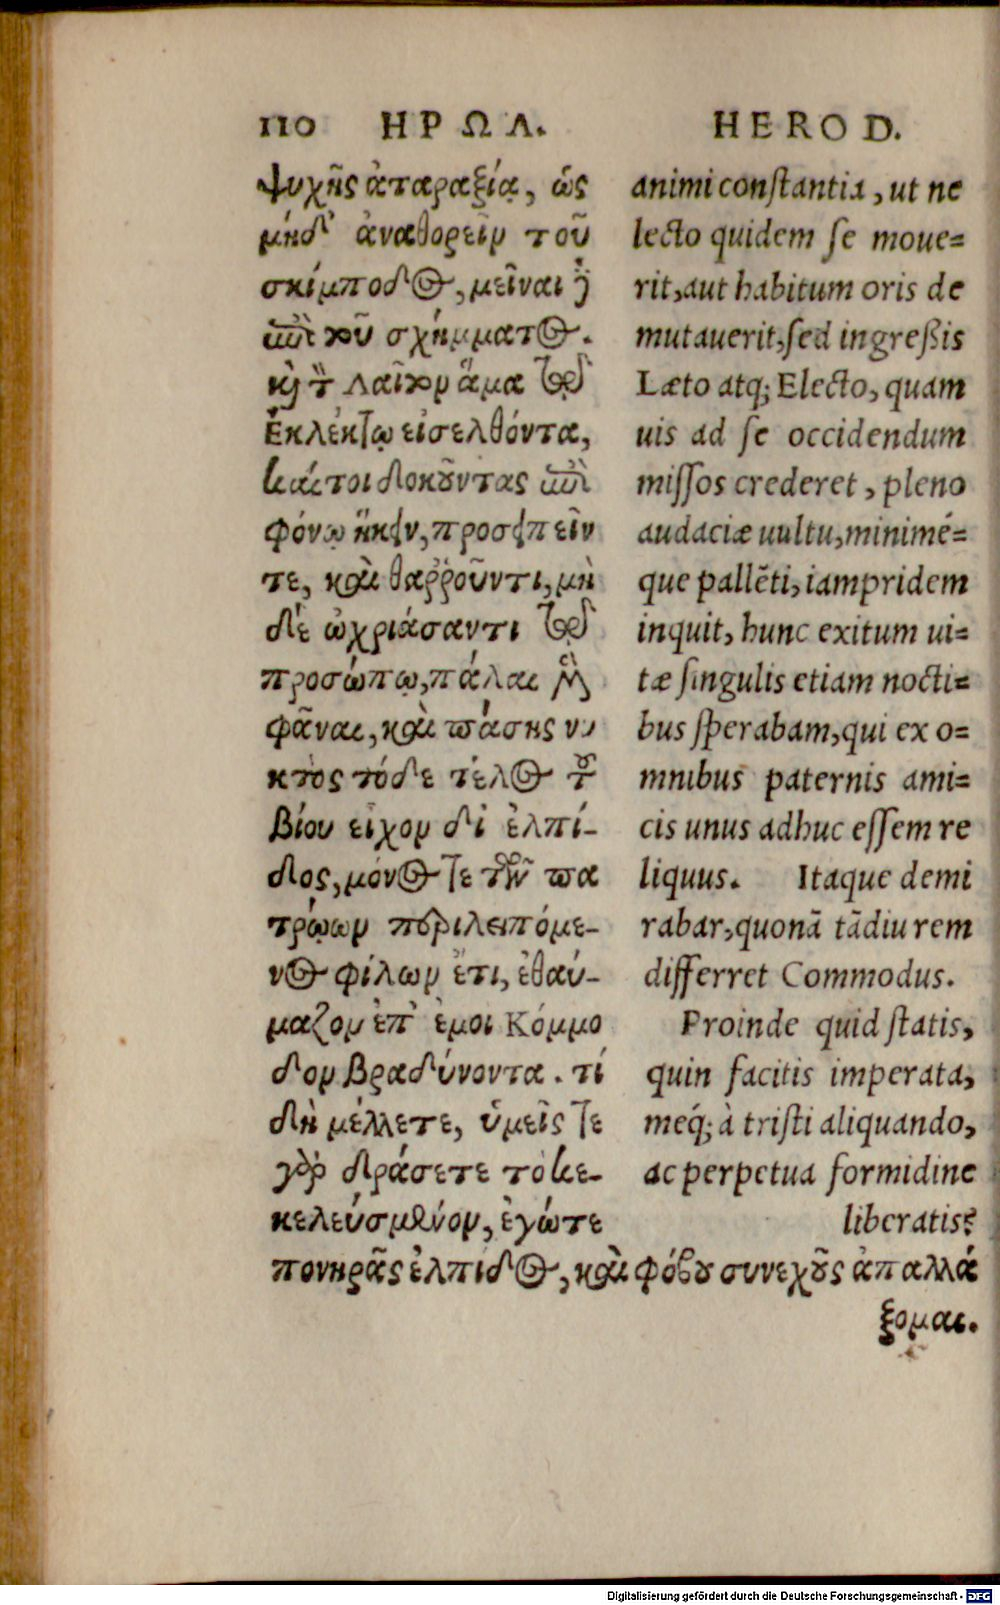 110 ΗΡΩΔ.
ψυχῆς ἀταραξίᾳ, ὡς
μήδ' ἀναθορεῖν τοῦ
σκίμποδος, μεῖναι δὲ
ἐπὶ τοῦ σχήμματος.
καὶ τὸν Λαῖτον ἅμα τῷ
Ἐκλέκτῳ εἰσελθόντα,
καίτοι δοκοῦντας ἐπὶ
φόνῳ ἥκειν, προσειπεῖν
τε, καὶ θαῤῥοῦντι, μὴ
δὲ ὠχριάσαντι τῷ
προσώπῳ, πάλαι μὲν
φᾶναι, καὶ πάσης νυ
κτὸς τόδε τέλος τοῦ
βίου εἶχον δι ἐλπί-
δος, μόνος τε τῶν πα
τρῴων περιλειπόμε-
νος φίλων ἔτι, ἐθαύ-
μαζον ἐπ' ἐμοι Κόμμο
δον βραδύνοντα. τί
δὴ μέλλετε, ὑμεῖς τε
γὰρ δράσετε τὸ κε-
κελεύσμένον, ἐγώ τε
πονηρᾶς ἐλπιδος, καὶ φόβου συνεχοῦς ἀπαλλά
ξομαι.
HEROD.
animi constantia, ut ne
lecto quidem se moue=
rit, aut habitum oris de
mutauerit, sed ingreßis
Læto atq; Electo, quam
uis ad se occidendum
missos crederet, pleno
audaciæ uultu, minimé=
que pallẽti, iampridem
inquit, hunc exitum ui=
tæ singulis etiam nocti=
bus sperabam, qui ex o=
mnibus paternis ami=
cis unus adhuc essem re
liquus. Itaque demi
rabar, quonã tãdiu rem
differret Commodus.
Proinde quid statis,
quin facitis imperata,
meq́; à tristi aliquando,
ac perpetua formidine
liberatis?
Digitalisierung gefördert durch die Deutsche Forschungsgemeinschaft - DFG